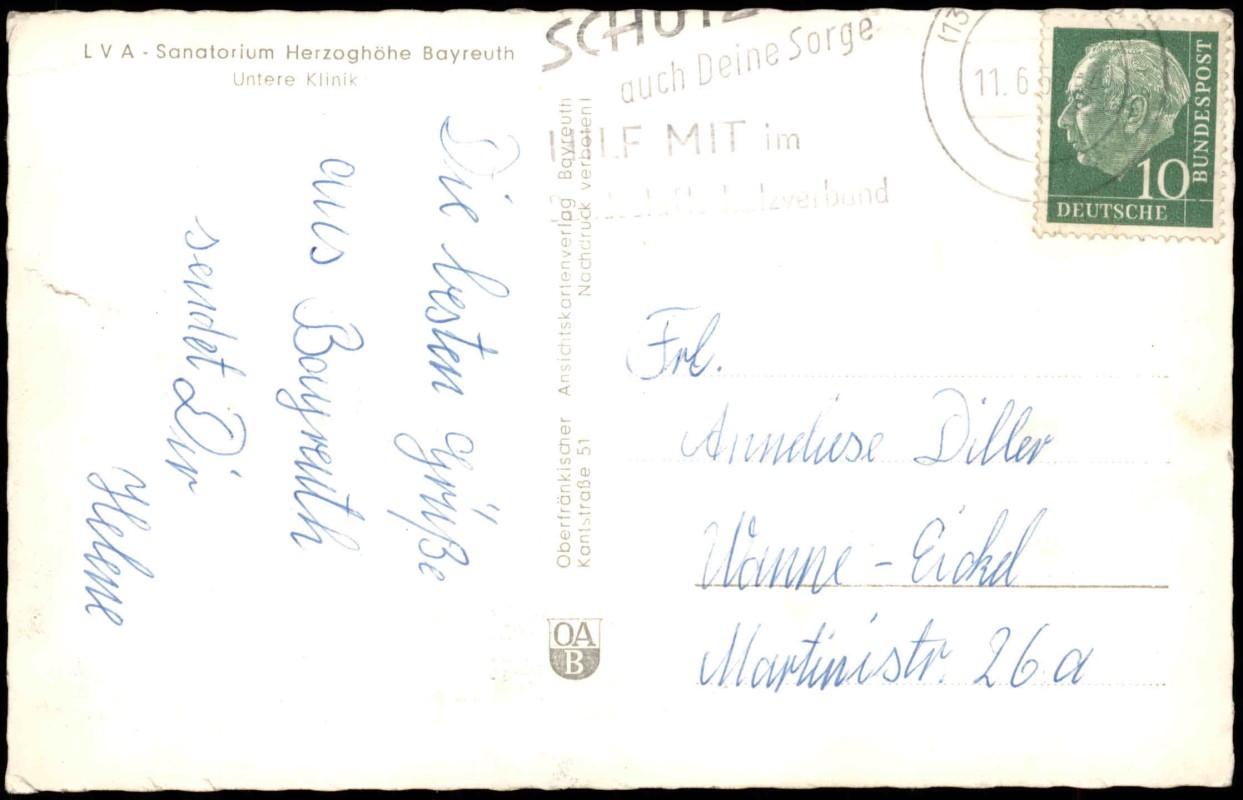 LVA - Sanatorium Herzoghöhe Bayreuth
Untere Klinik
Die besten Grüße
aus Bayreuth
sendet Dir
Helene
Oberfränkischer Ansichtskartenverlag Bayreuth
Kantstraße 51 Nachdruck verboten!
OA
B
SCHUTZ
auch Deine Sorge
HILF MIT im
11.6.
BUNDESPOST
10
DEUTSCHE
Frl.
Anneliese Diller
Wanne-Eickel
Martinistr. 26a